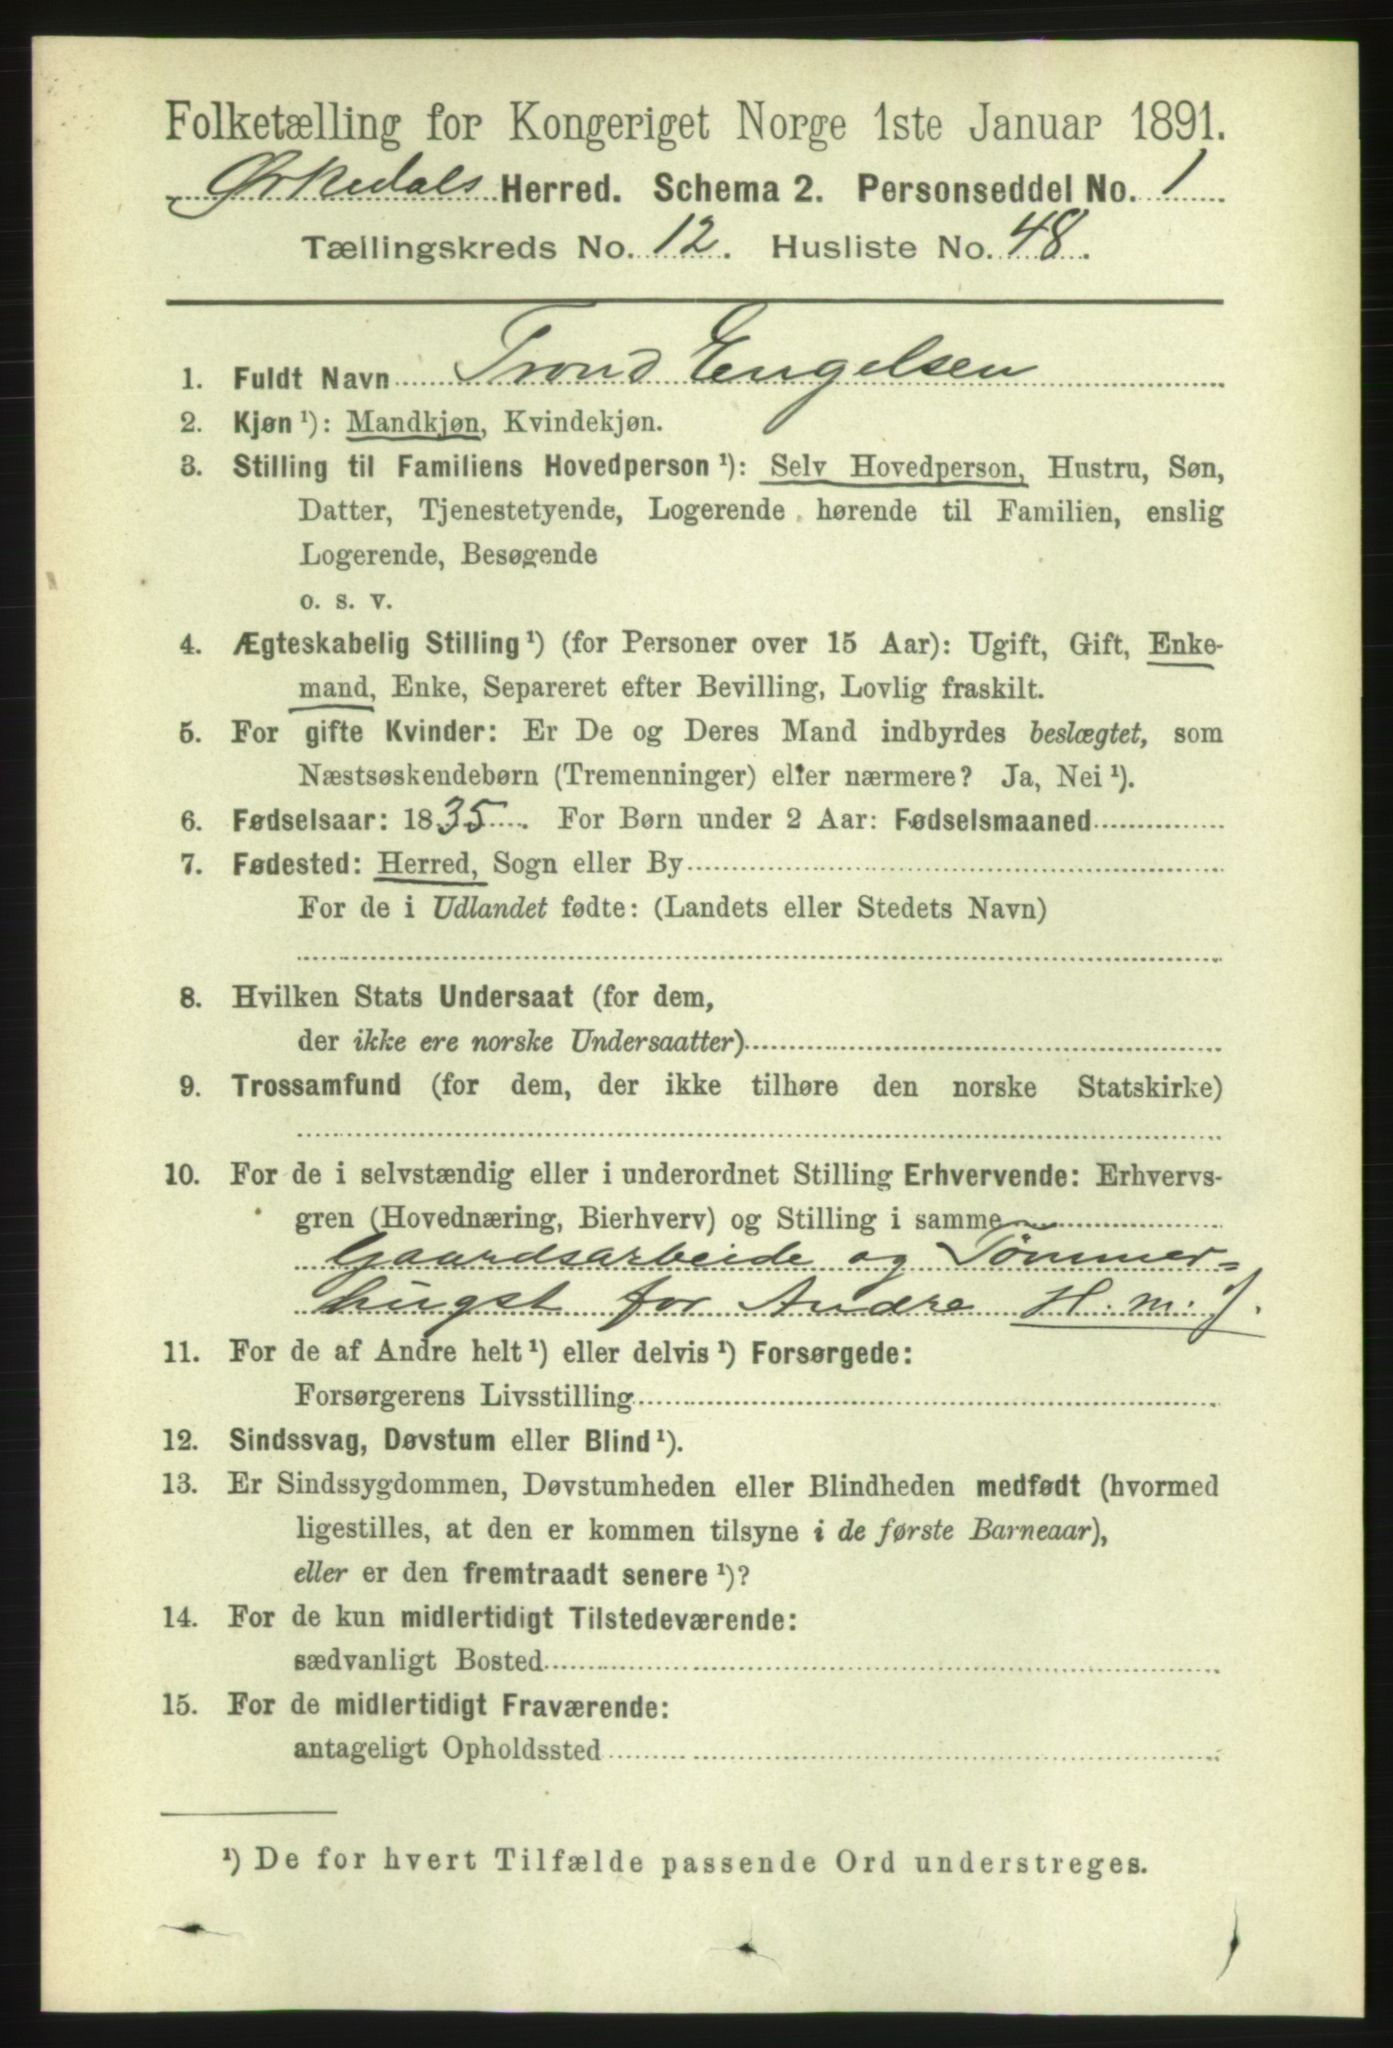 Folketælling for Kongeriget Norge 1ste Januar 1891.
Ørkedals Herred. Schema 2. Personseddel No. 1
Tællingskreds No. 12. Husliste No. 48.
1. Fuldt Navn Trond Engelsen
2. Kjøn ¹): Mandkjøn, Kvindekjøn.
3. Stilling til Familiens Hovedperson ¹): Selv Hovedperson, Hustru, Søn,
Datter, Tjenestetyende, Logerende hørende til Familien, enslig
Logerende, Besøgende
o. s. v.
4. Ægteskabelig Stilling ¹) (for Personer over 15 Aar): Ugift, Gift, Enke-
mand, Enke, Separeret efter Bevilling, Lovlig fraskilt.
5. For gifte Kvinder: Er De og Deres Mand indbyrdes beslægtet, som
Næstsøskendebørn (Tremenninger) eller nærmere? Ja, Nei ¹).
6. Fødselsaar: 1835. For Børn under 2 Aar: Fødselsmaaned
7. Fødested: Herred, Sogn eller By
For de i Udlandet fødte: (Landets eller Stedets Navn)
8. Hvilken Stats Undersaat (for dem,
der ikke ere norske Undersaatter)
9. Trossamfund (for dem, der ikke tilhøre den norske Statskirke)
10. For de i selvstændig eller i underordnet Stilling Erhvervende: Erhvervs-
gren (Hovednæring, Bierhverv) og Stilling i samme
Gaardsarbeide og Tømmer=
hugst for Andre H. m. J.
11. For de af Andre helt ¹) eller delvis ¹) Forsørgede:
Forsørgerens Livsstilling
12. Sindssvag, Døvstum eller Blind ¹).
13. Er Sindssygdommen, Døvstumheden eller Blindheden medfødt (hvormed
ligestilles, at den er kommen tilsyne i de første Barneaar),
eller er den fremtraadt senere ¹)?
14. For de kun midlertidigt Tilstedeværende:
sædvanligt Bosted
15. For de midlertidigt Fraværende:
antageligt Opholdssted
¹) De for hvert Tilfælde passende Ord understreges.